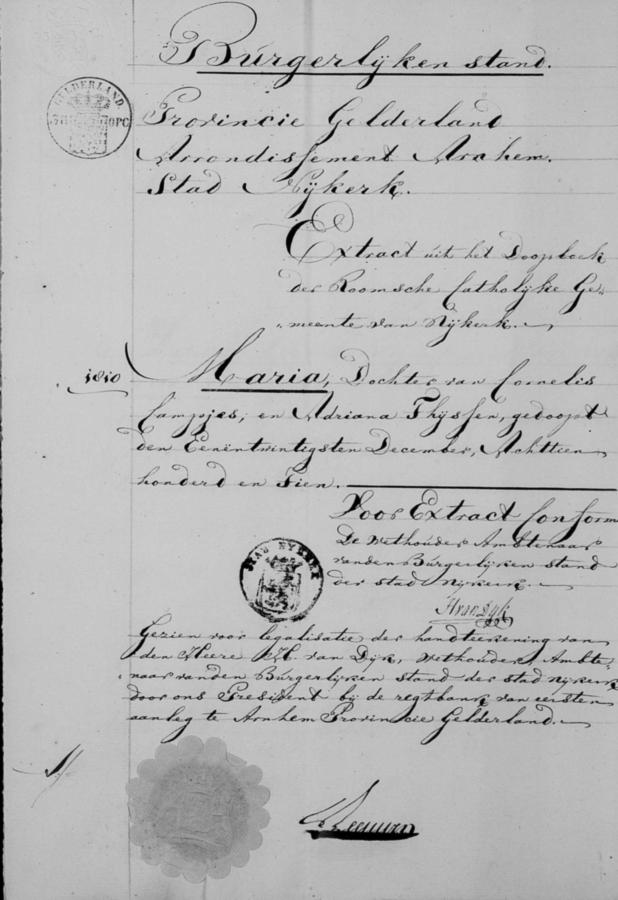 Búrgerlijken stand.
GELDERLAND.
Provincie Gelderland
Arrondissement Arnhem.
Stad Nijkerk.
Extract úit het Doopboek
der Roomsche Catholijke Ge-
meente van Nijkerk.
1810
Maria, Dochter van Cornelis
Campjes, en Adriana Thijssen, gedoopt
den Eenentwintigsten December, Achttien
honderd en Tien.
Voor Extract Conform
De Wethouder Ambtenaar
van den Búrgerlijken stand
der stad Nijkerk.
STAD NYKERK
HvanDijk
Gezien voor legalisatie der handteekening van
den Heere H. van Dijk, Wethouder, Ambte-
naar van den Búrgerlijken stand der stad Nijkerk
door ons President bij de regtbank van eersten
aanleg te Arnhem Provincie Gelderland.